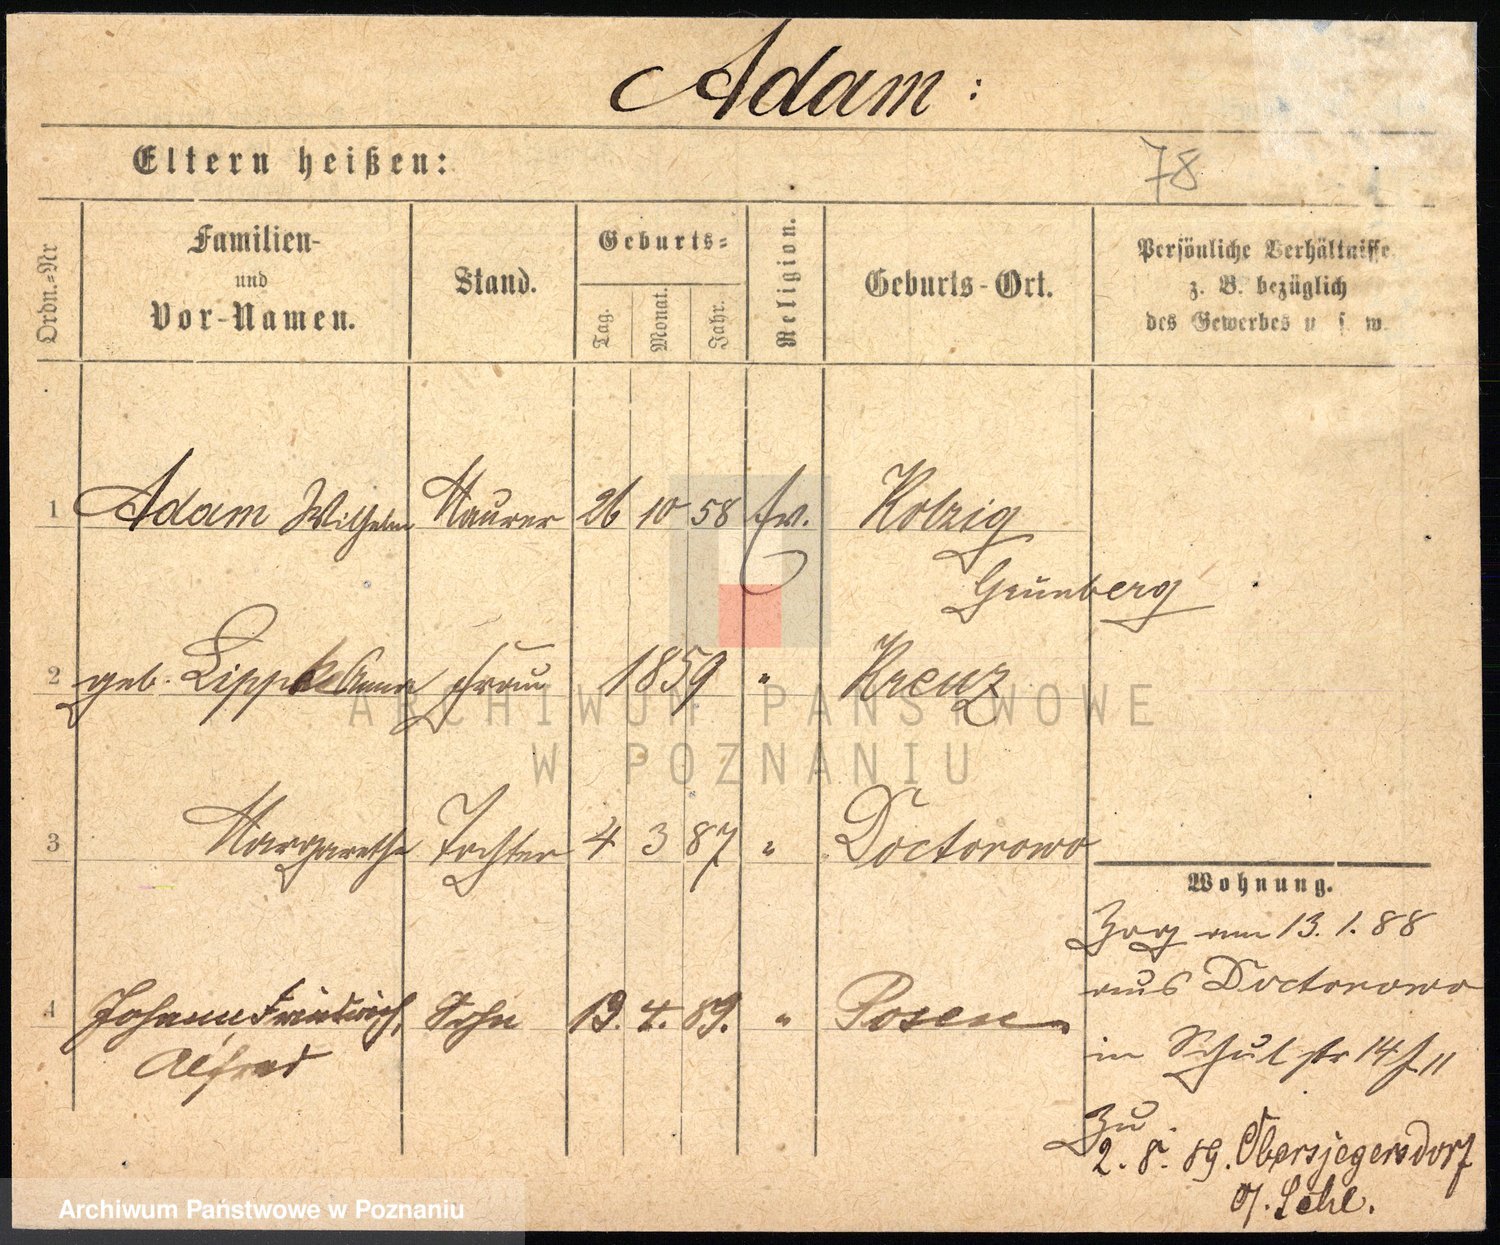 Adam:
Eltern heißen:
78
Ordn.-Nr
Familien-
und
Vor-Namen.
Stand.
Geburts-
Tag.
Monat.
Jahr.
Religion.
Geburts-Ort.
Persönliche Verhältnisse
z. B. bezüglich
des Gewerbes u. s. w.
1 Adam Wilhelm Maurer 26 10 58 ev. Kolzig
Grünberg
2 geb. Lippke Anna Frau 1859 " Kreuz
3 Margarethe Tochter 4 3 87 " Doctorowo
Wohnung.
Zog am 13. 1. 88
aus Doctorowo
4 Johann Friedrich, Sohn 19. 4. 89. " Posen
Alfred
in Schulstr 14
Zu
2. 8. 89. Obersjegersdorf
o/. Schl.
ARCHIWUM PAŃSTWOWE
W POZNANIU
Archiwum Państwowe w Poznaniu